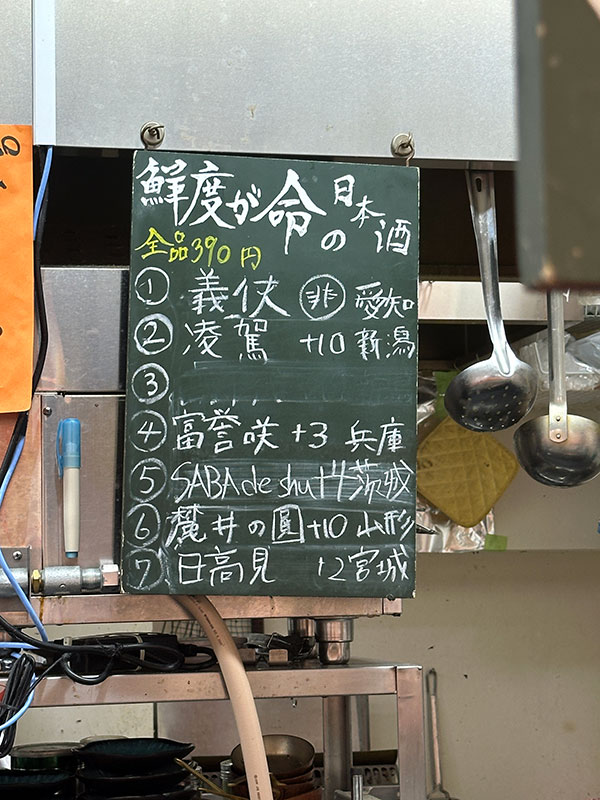 鮮度が命の日本酒
全品390円
① 義侠 ㊙ 愛知
② 凌駕 +10 新潟
③
④ 富誉咲 +3 兵庫
⑤ SABA de shu +4 茨城
⑥ 麓井の圓 +10 山形
⑦ 日高見 +2 宮城